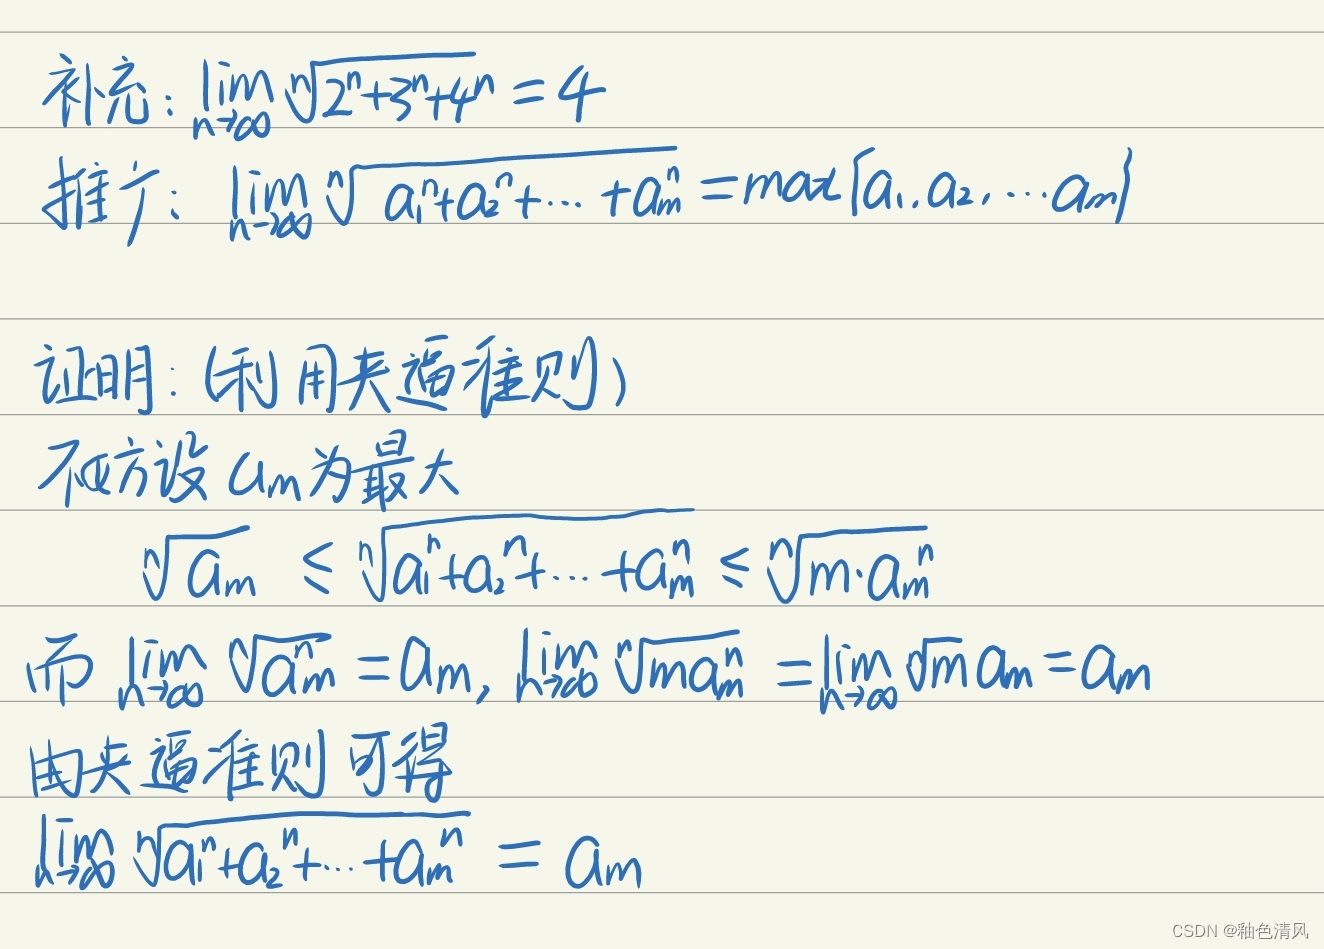 补充: lim_{n→∞} ⁿ√(2ⁿ+3ⁿ+4ⁿ) = 4
推广: lim_{n→∞} ⁿ√(a₁ⁿ+a₂ⁿ+⋯+aₘⁿ) = max{a₁,a₂,⋯aₘ}
证明:(利用夹逼准则)
不妨设 aₘ为最大
ⁿ√aₘ ≤ ⁿ√(a₁ⁿ+a₂ⁿ+⋯+aₘⁿ) ≤ ⁿ√(m·aₘⁿ)
而 lim_{n→∞} ⁿ√(aₘⁿ) = aₘ, lim_{n→∞} ⁿ√(maₘⁿ) = lim_{n→∞} ⁿ√m aₘ = aₘ
由夹逼准则可得
lim_{n→∞} ⁿ√(a₁ⁿ+a₂ⁿ+⋯+aₘⁿ) = aₘ
CSDN @釉色清风